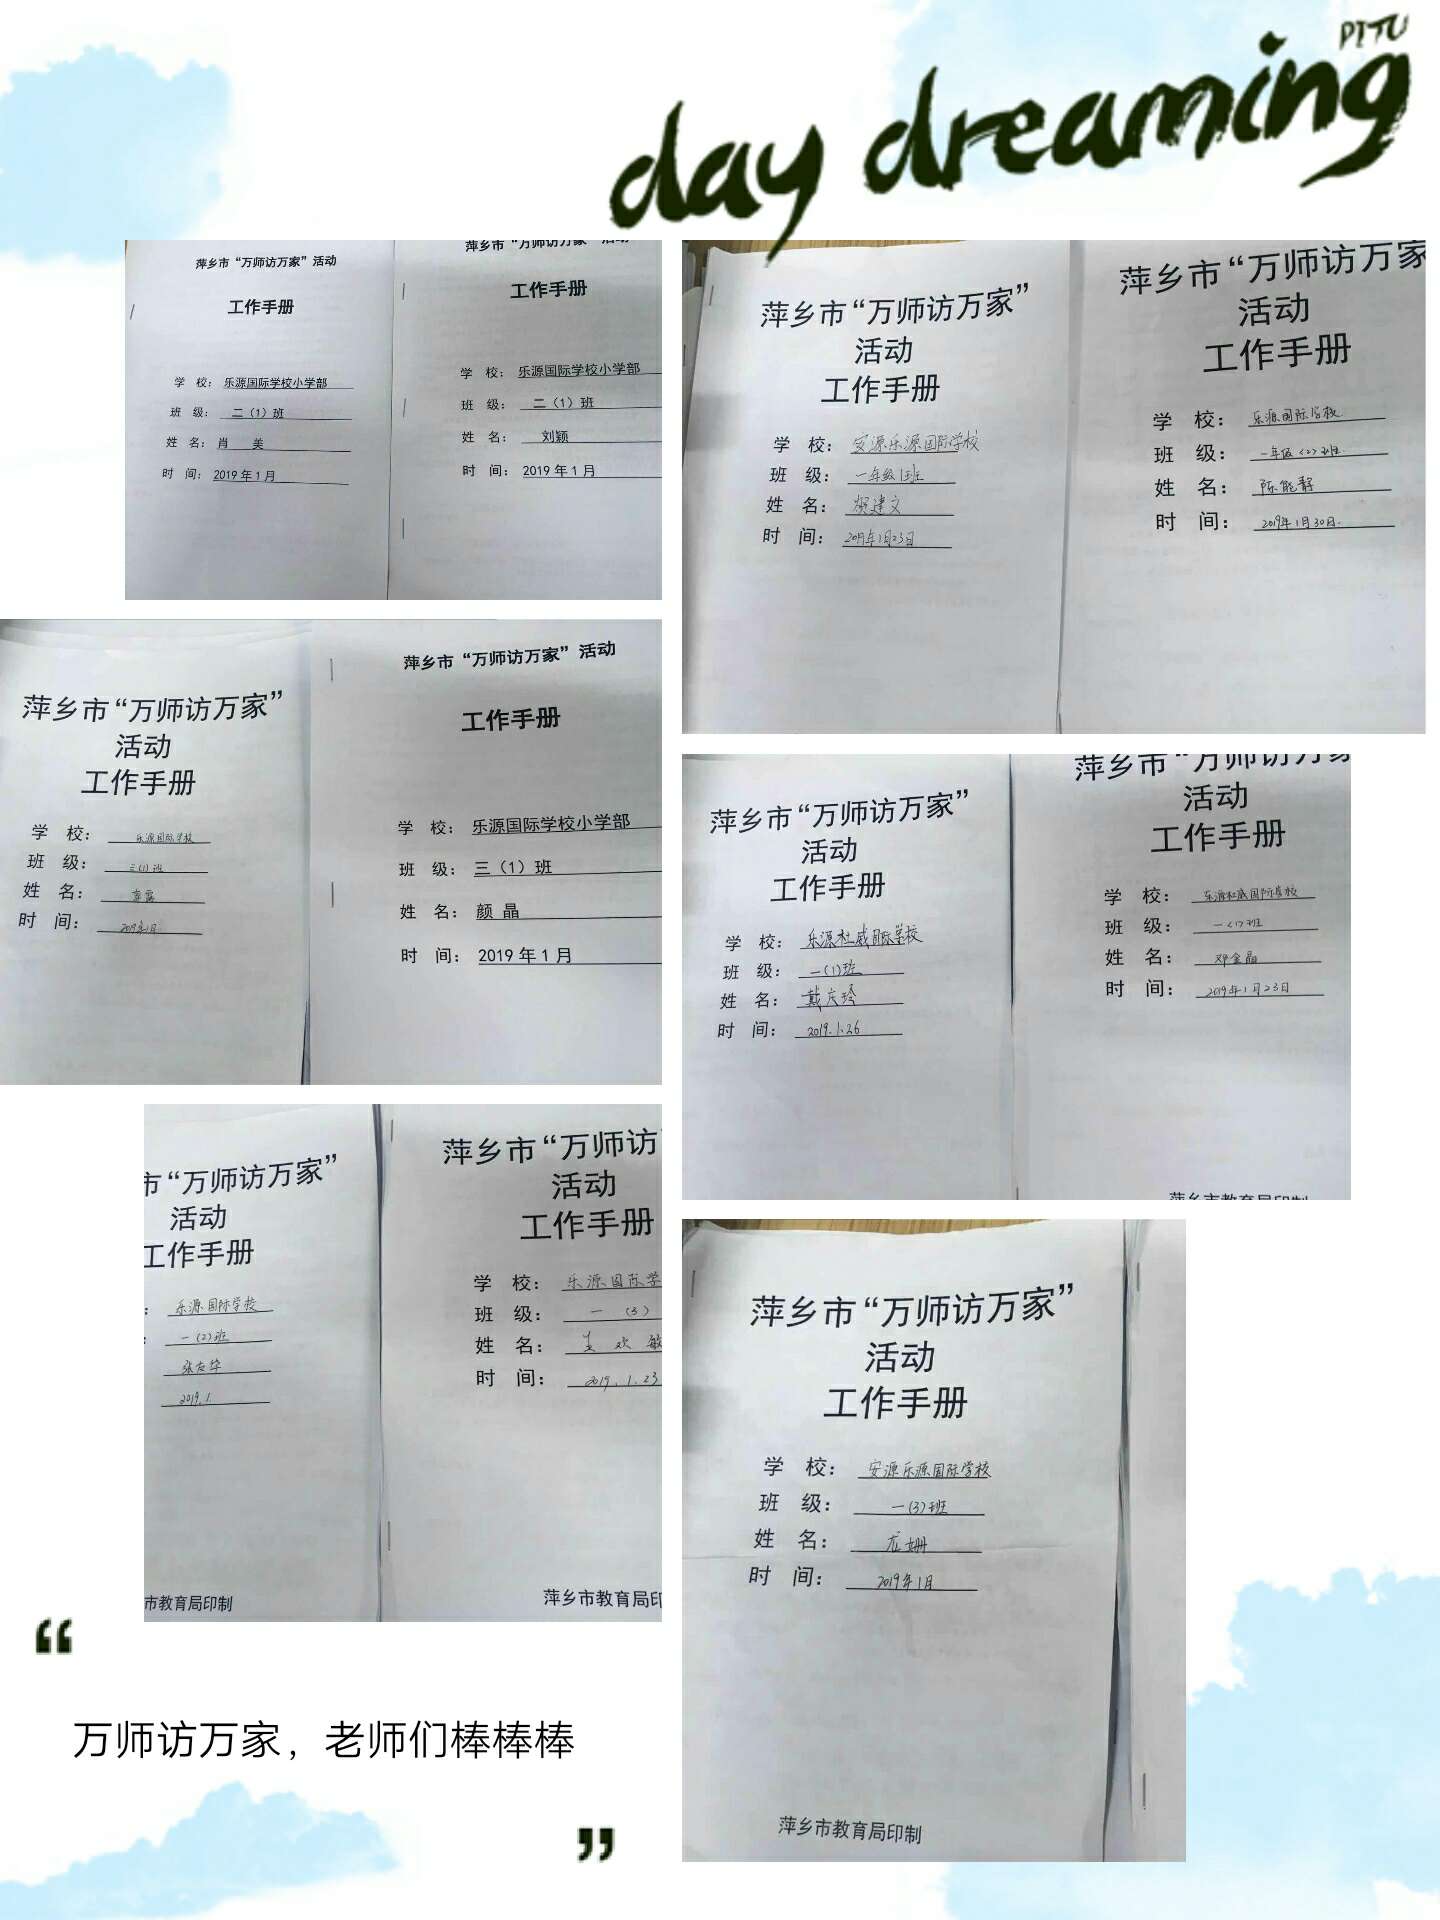 PITU
day dreaming
萍乡市“万师访万家”活动
工作手册
学 校：乐源国际学校小学部
班 级：二（1）班
姓 名：肖 美
时 间：2019年1月
萍乡市“万师访万家”活动
工作手册
学 校：乐源国际学校小学部
班 级：二（1）班
姓 名：刘颖
时 间：2019年1月
萍乡市“万师访万家”
活动
工作手册
学 校：安源乐源国际学校
班 级：一年级1班
姓 名：建文
时 间：2019年1月23日
萍乡市“万师访万家
活动
工作手册
学 校：乐源国际学校
班 级：一年级（2）班
姓 名：陈能静
时 间：2019年1月30日.
萍乡市“万师访万家”
活动
工作手册
学 校：乐源国际学校
班 级：三（1）班
姓 名：
时 间：2019年1月
萍乡市“万师访万家”活动
工作手册
学 校：乐源国际学校小学部
班 级：三（1）班
姓 名：颜 晶
时 间：2019年1月
萍乡市“万师访万家”
活动
工作手册
学 校：乐源杜威国际学校
班 级：一（1）班
姓 名：戴庆玲
时 间：2019.1.26
萍乡市“万师访万家
活动
工作手册
学 校：乐源杜威国际学校
班 级：一（1）班
姓 名：邓金晶
时 间：2019年1月23日
萍乡市教育局印制
市“万师访万家”
活动
工作手册
：乐源国际学校
：一（2）班
张友华
2019.1
市教育局印制
萍乡市“万师访
活动
工作手册
学 校：乐源国际学
班 级：一（3）
姓 名：欢 敏
时 间：2019.1.23
萍乡市教育局印
萍乡市“万师访万家”
活动
工作手册
学 校：安源乐源国际学校
班 级：一（3）班
姓 名：龙姗
时 间：2019年1月
萍乡市教育局印制
“
万师访万家，老师们棒棒棒
”